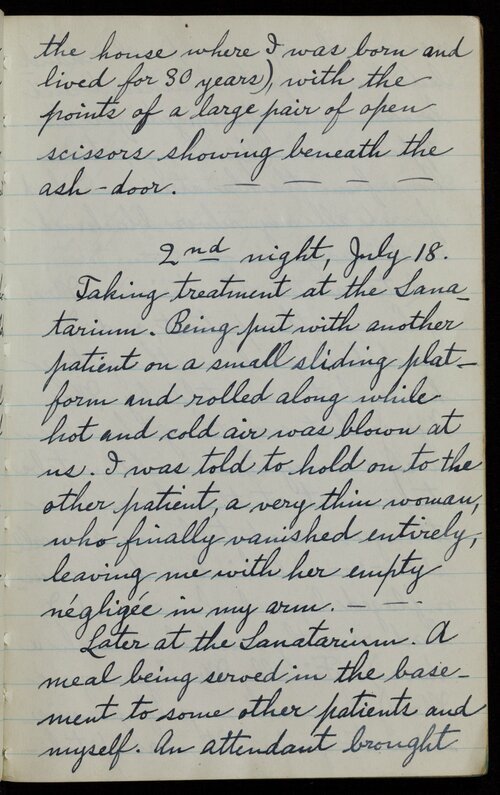 the house where I was born and
lived for 30 years), with the
points of a large pair of open
scissors showing beneath the
ash-door. — — — —
2nd night, July 18.
Taking treatment at the Sana-
tarium. Being put with another
patient on a small sliding plat-
form and rolled along while
hot and cold air was blown at
us. I was told to hold on to the
other patient, a very thin woman,
who finally vanished entirely,
leaving me with her empty
négligée in my arm. — — -
Later at the Sanatarium. A
meal being served in the base-
ment to some other patients and
myself. An attendant brought